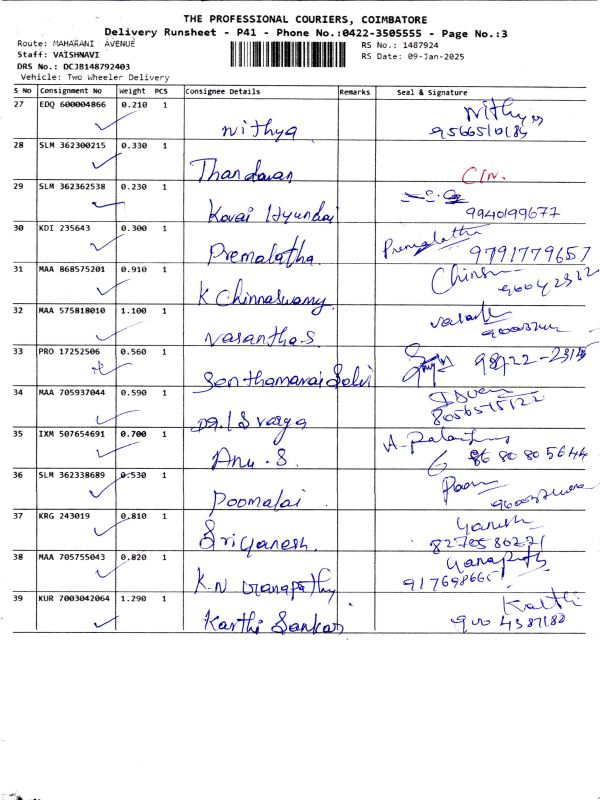 THE PROFESSIONAL COURIERS, COIMBATORE
Delivery Runsheet - P41 - Phone No.:0422-3505555 - Page No.:3
Route: MAHARANI AVENUE
RS No.: 1487924
Staff: VAISHNAVI
RS Date: 09-Jan-2025
DRS No.: DCJB148792403
Vehicle: Two Wheeler Delivery
S No Consignment No Weight PCS Consignee Details Remarks Seal & Signature
27 EDQ 600004866 0.210 1 Nithya
28 SLM 362300215 0.330 1 Thandavan
29 SLM 362362538 0.230 1 Kovai Hyundai 9940199677
30 KDI 235643 0.300 1 Premalatha Premalatha 9791779657
31 MAA 868575201 0.910 1 K Chinnaswamy
32 MAA 575818010 1.100 1 Vasantha S
33 PRO 17252506 0.560 1
34 MAA 705937044 0.590 1
35 IXM 507654691 0.700 1 Anu . S 86 80 80 5644
36 SLM 362338689 0.530 1 Poomalai
37 KRG 243019 0.810 1 Sri Ganesh. Ganesh
38 MAA 705755043 0.820 1 K.N Ganapathy
39 KUR 7003042064 1.290 1 Karthi Sankar